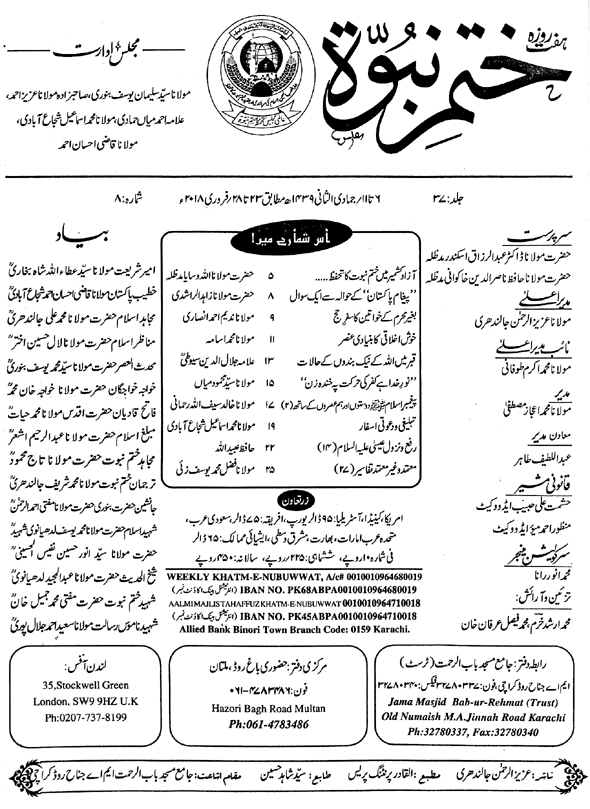 ہفت روزہ
ختم نبوۃ
مجلس ادارت
مولانا سید سلیمان یوسف بنوری، صاحبزادہ مولانا عزیز احمد،
علامہ احمد میاں حمادی، مولانا محمد اسماعیل شجاع آبادی،
مولانا قاضی احسان احمد
جلد: ۳۷
۶ تا ۱۱؍ جمادی الثانی ۱۴۳۹ھ مطابق ۲۳ تا ۲۸؍ فروری ۲۰۱۸ء
شمارہ: ۸
سرپرست
حضرت مولانا ڈاکٹر عبدالرزاق اسکندر مدظلہ
حضرت مولانا حافظ ناصر الدین خاکوانی مدظلہ
مدیر اعلیٰ
مولانا عزیز الرحمٰن جالندھری
نائب مدیر اعلیٰ
مولانا محمد اکرم طوفانی
مدیر
مولانا محمد اعجاز مصطفیٰ
معاون مدیر
عبداللطیف طاہر
قانونی مشیر
حشمت علی حبیب ایڈووکیٹ
منظور احمد میو ایڈووکیٹ
سرکولیشن منیجر
محمد انور رانا
تزئین و آرائش:
محمد ارشد خرم، محمد فیصل عرفان خان
اس شمارے میں!
آزاد کشمیر میں ختم نبوت کا تحفظ..... ۵ حضرت مولانا اللہ وسایا مدظلہ
”پیغام پاکستان“ کے حوالہ سے ایک سوال ۸ حضرت مولانا زاہد الراشدی
بغیر محرم کے خواتین کا سفر حج ۹ مولانا ندیم احمد انصاری
خوش اخلاقی کا بنیادی عنصر ۱۱ مولانا محمد اسامہ
قبر میں اللہ کے نیک بندوں کے حالات ۱۳ علامہ جلال الدین سیوطیؒ
”نور خدا ہے کفر کی حرکت پہ خندہ زن“ ۱۵ مولانا سید محمود میاں
پیغمبر اسلام ﷺ دوستوں اور ہم عصروں کے ساتھ (۲) ۱۷ مولانا خالد سیف اللہ رحمانی
تبلیغی و دعوتی اسفار ۱۹ مولانا محمد اسماعیل شجاع آبادی
رفع و نزول عیسیٰ علیہ السلام (۱۴) ۲۲ حافظ عبیداللہ
معتد و غیر معتمد تفاسیر (۲۷) ۲۵ مولانا فضل محمد یوسف زئی
زر تعاون
امریکا، کینیڈا، آسٹریلیا: ۹۵ ڈالر یورپ، افریقہ: ۷۵ ڈالر سعودی عرب،
متحدہ عرب امارات، بھارت، مشرق وسطیٰ، ایشیائی ممالک: ۶۵ ڈالر
فی شمارہ ۱۰ روپے، ششماہی: ۲۲۵ روپے، سالانہ: ۴۵۰ روپے
WEEKLY KHATM-E-NUBUWWAT, A/c# 0010010964680019
IBAN NO. PK68ABPA0010010964680019 (انٹرنیشنل بینک اکاؤنٹ نمبر)
AALMI MAJLIS TAHAFFUZ KHATM-E-NUBUWWAT 0010010964710018
IBAN NO. PK45ABPA0010010964710018 (انٹرنیشنل بینک اکاؤنٹ نمبر)
Allied Bank Binori Town Branch Code: 0159 Karachi.
بیاد
امیر شریعت مولانا سید عطاء اللہ شاہ بخاریؒ
خطیب پاکستان مولانا قاضی احسان احمد شجاع آبادیؒ
مجاہد اسلام حضرت مولانا محمد علی جالندھریؒ
مناظر اسلام حضرت مولانا لال حسین اخترؒ
محدث العصر حضرت مولانا سید محمد یوسف بنوریؒ
خواجہ خواجگان حضرت مولانا خواجہ خان محمدؒ
فاتح قادیان حضرت اقدس مولانا محمد حیاتؒ
مبلغ اسلام حضرت مولانا عبدالرحیم اشعرؒ
مجاہد ختم نبوت حضرت مولانا تاج محمودؒ
ترجمان ختم نبوت مولانا محمد شریف جالندھریؒ
جانشین حضرت بنوری حضرت مولانا مفتی احمد الرحمٰنؒ
شہید اسلام حضرت مولانا محمد یوسف لدھیانوی شہیدؒ
حضرت مولانا سید انور حسین نفیس الحسینیؒ
شیخ الحدیث حضرت مولانا عبدالمجید لدھیانویؒ
شہید ختم نبوت حضرت مفتی محمد جمیل خانؒ
شہید ناموس رسالت مولانا سعید احمد جلال پوریؒ
رابطہ دفتر: جامع مسجد باب الرحمت (ٹرسٹ)
ایم اے جناح روڈ کراچی، فون: ۳۲۷۸۰۳۳۷ فیکس: ۳۲۷۸۰۳۴۰
Jama Masjid Bab-ur-Rehmat (Trust)
Old Numaish M.A.Jinnah Road Karachi
Ph:32780337, Fax:32780340
مرکزی دفتر: حضوری باغ روڈ، ملتان
فون: ۰۶۱-۴۷۸۳۴۸۶
Hazori Bagh Road Multan
Ph:061-4783486
لندن آفس:
35,Stockwell Green
London, SW9 9HZ U.K
Ph:0207-737-8199
ناشر: عزیز الرحمٰن جالندھری مطبع: القادر پرنٹنگ پریس طابع: سید شاہد حسین مقام اشاعت: جامع مسجد باب الرحمت ایم اے جناح روڈ کراچی